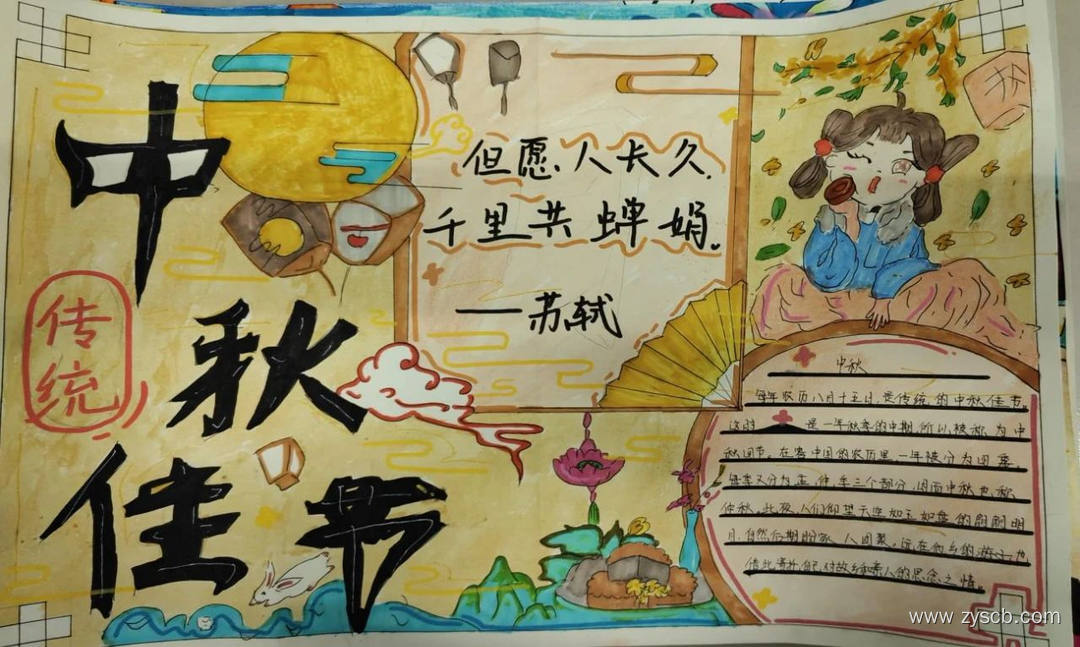 中
秋
佳节
传
统
但愿人长久.
千里共蝉娟。
——苏轼
秋
中秋
每年农历八月十五日,是传统的中秋佳节。
这时是一年秋季的中期,所以被称为中
秋团节。在中国的农历里,一年被分为四季,
每季又分为孟、仲、季三个部分,因而中秋也称
仲秋。此夜,人们仰望天空如玉如盘的朗朗明
月,自然后期盼家人团聚。远在他乡的游子,也
借此寄托自己对故乡和亲人的思念之情。
www.zyscb.com